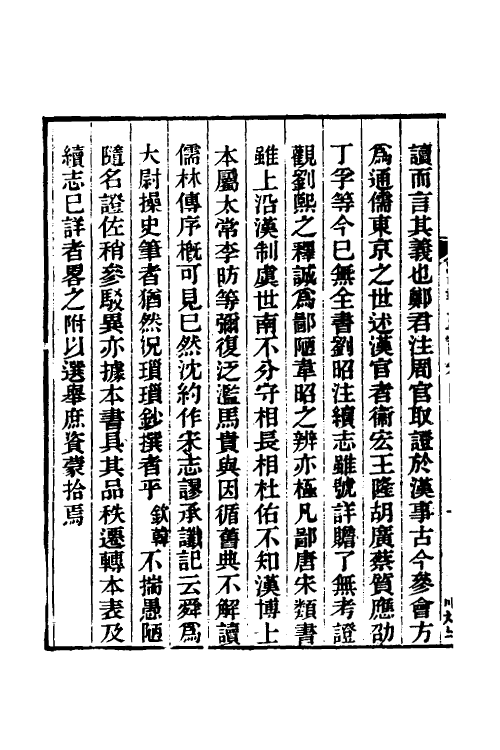 讀而言其義也鄭君注周官取證於漢事古今參會方
爲通儒東京之世述漢官者衞宏王隆胡廣蔡質應劭
丁孚等今已無全書劉昭注續志雖號詳贍了無考證
觀劉熙之釋誠爲鄙陋韋昭之辨亦極凡鄙唐宋類書
雖上沿漢制虞世南不分守相長相杜佑不知漢博士
本屬太常李昉等彌復泛濫馬貴與因循舊典不解讀
儒林傳序槪可見已然沈約作宋志謬承讖記云舜爲
大尉操史筆者猶然况瑣瑣鈔撰者乎 欽韓 不揣愚陋
隨名證佐稍參駁異亦據本書具其品秩遷轉本表及
續志已詳者畧之附以選舉庶資蒙拾焉